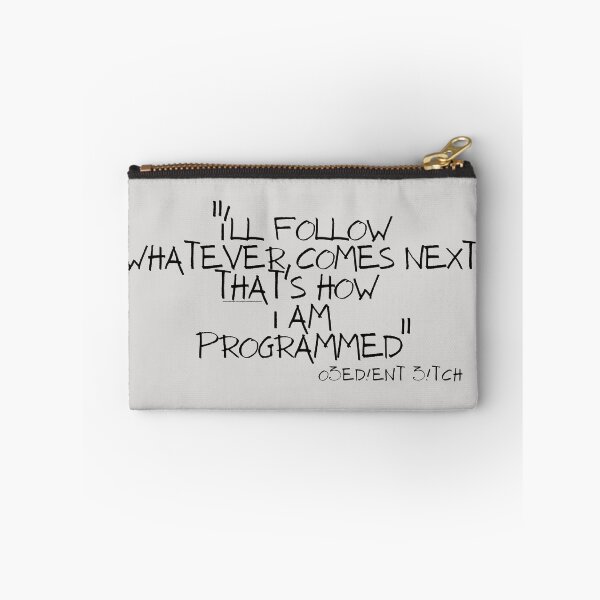 "I'LL FOLLOW
WHATEVER, COMES NEXT
THAT'S HOW
I AM
PROGRAMMED"
O3ED!ENT 3!TCH